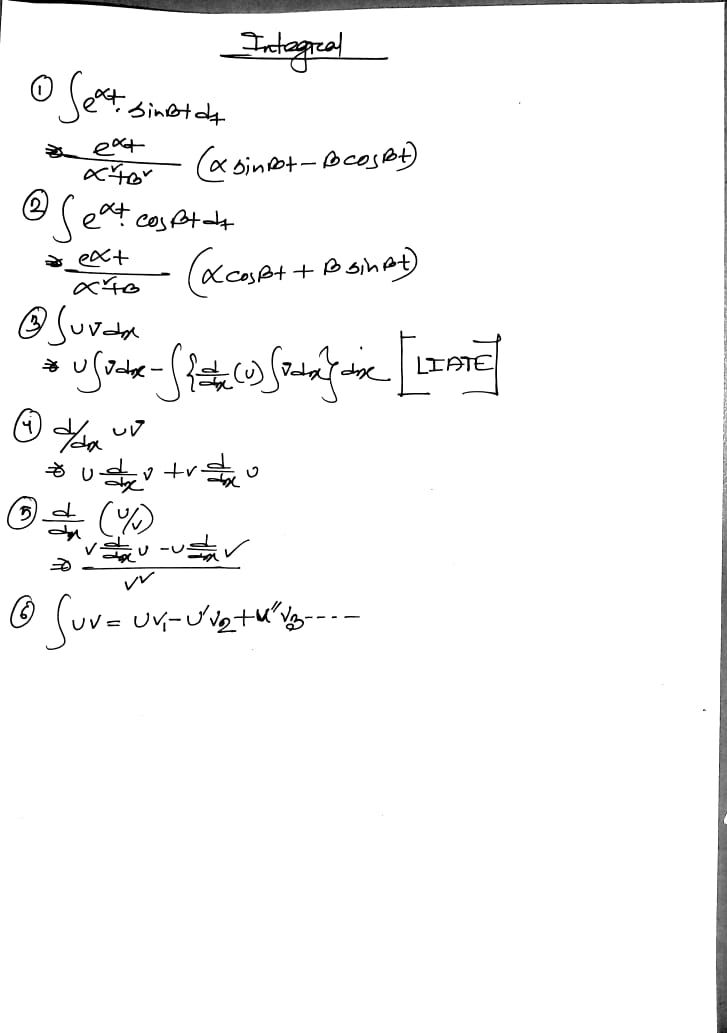 Integral
① ∫e^αt. sinβt dt
⇒ e^αt / α²+β² (α sinβt – β cosβt)
② ∫e^αt. cosβt dt
⇒ e^αt / α²+β (α cosβt + β sinβt)
③ ∫uv dx
⇒ u∫v dx – ∫{d/dx (u) ∫v dx} dx [LIATE]
④ d/dx uv
⇒ u d/dx v + v d/dx u
⑤ d/dx (u/v)
⇒ v d/dx u – u d/dx v / v²
⑥ ∫uv = uv₁ – u'v₂ + u''v₃ ----